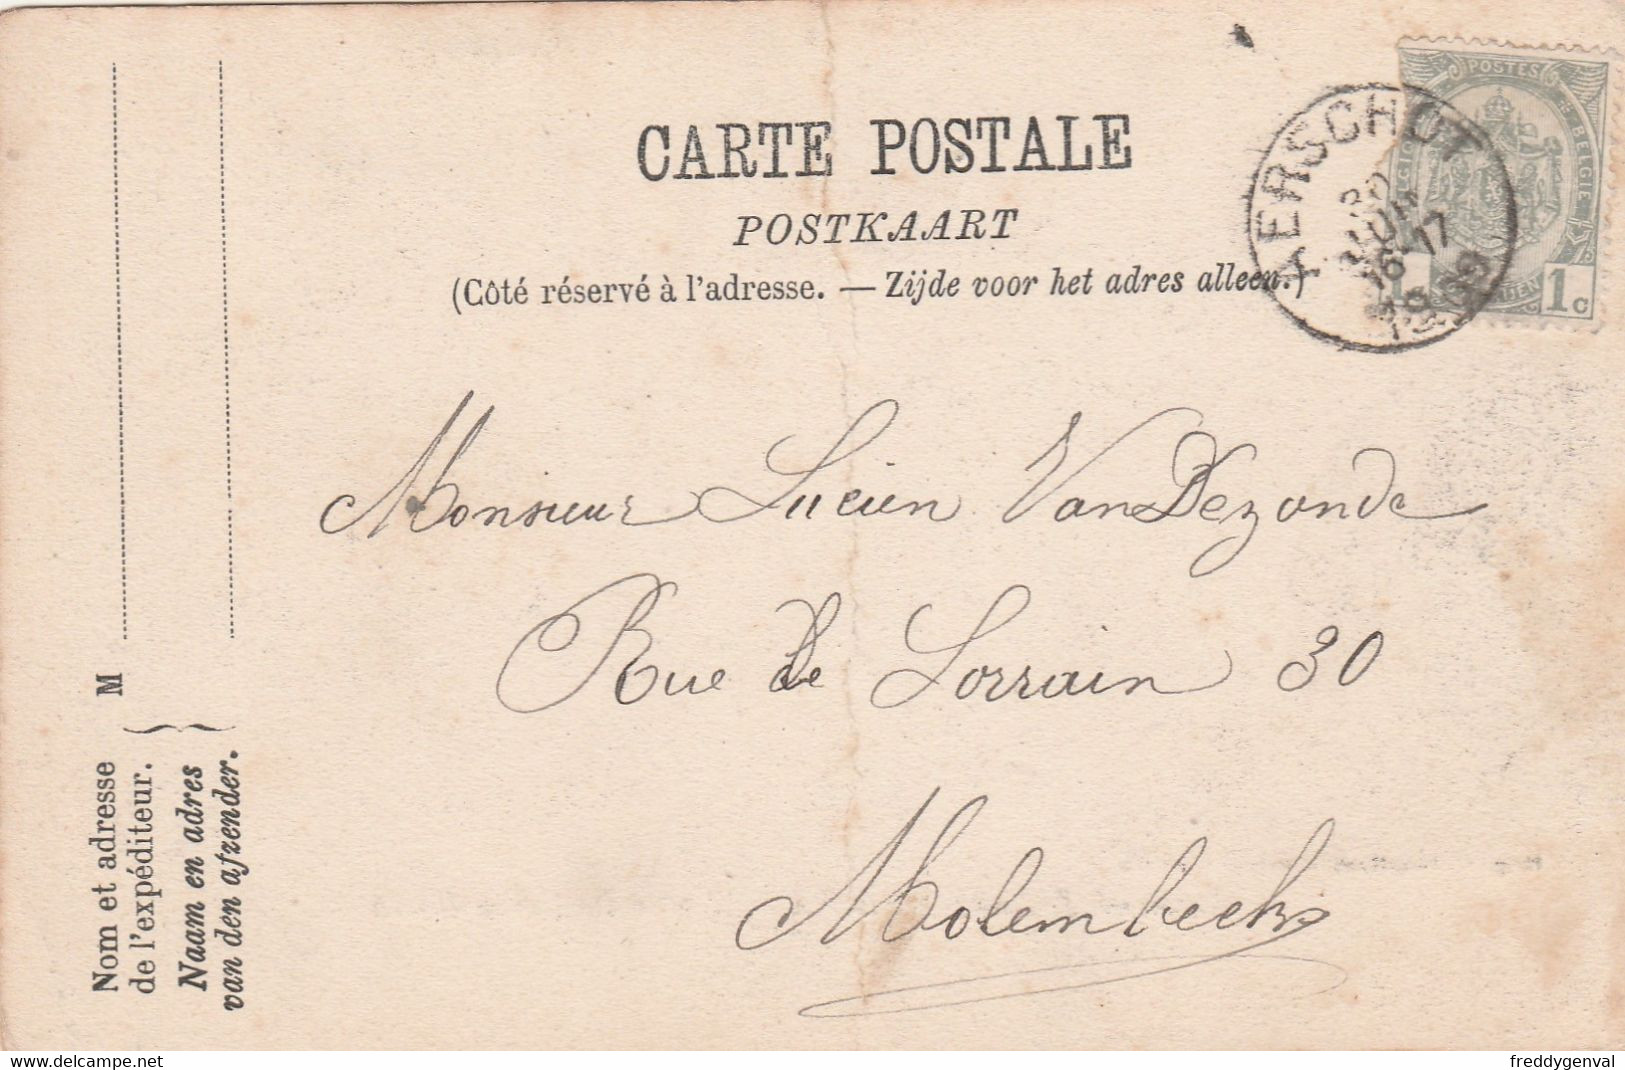 CARTE POSTALE
POSTKAART
(Côté réservé à l'adresse. — Zijde voor het adres alleen.)
AERSCHOT
POSTES
BELGIE
1c
Monsieur Lucien VanDezonde
Rue de Lorrain 30
Molembeek
M
Nom et adresse
de l'expéditeur.
Naam en adres
van den afzender.
www.delcampe.net
freddygenval